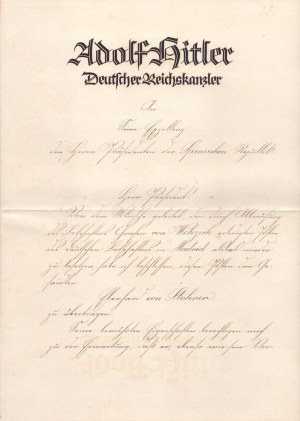 Adolf Hitler
Deutscher Reichskanzler
An
Seine Exzellenz
den Herrn Präsidenten der Spanischen Republik
Herr Präsident!
Von dem Wunsche geleitet, den durch Abberufung
des Botschafters Grafen von Welczeck erledigten Posten
des Deutschen Botschafters in Madrid alsbald wieder
zu besetzen, habe ich beschlossen, diesen Posten dem Ge-
sandten
Eberhard von Stohrer
zu übertragen.
Seine bewährten Eigenschaften berechtigen mich
zu der Erwartung, daß er, ebenso wie sein Vor-